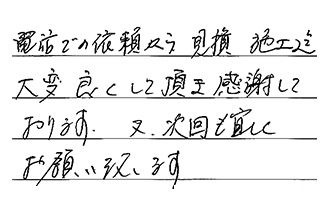 電話での依頼から見積 施工迄
大変良くして頂き感謝して
おります。又、次回も宜しく
お願い致します